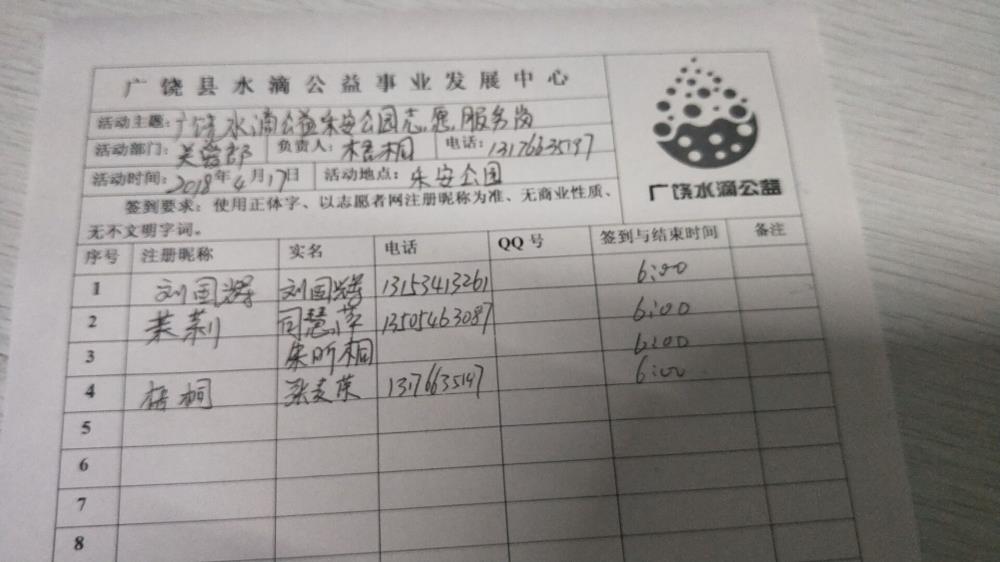 广饶县水滴公益事业发展中心
活动主题:广饶水滴公益乐安公园志愿服务岗
活动部门:芙蓉部 负责人:梧桐 电话:13176635197
活动时间:2018年4月17日 活动地点:乐安公园
签到要求:使用正体字、以志愿者网注册昵称为准、无商业性质、
无不文明字词。
广饶水滴公益
序号 注册昵称 实名 电话 QQ号 签到与结束时间 备注
1 刘国辉 刘国辉 13153413261 6:00
2 茉莉 司慧萍 13505463087 6:00
3 6:00
4 梧桐 张麦荣 13176635197 6:00
5
6
7
8